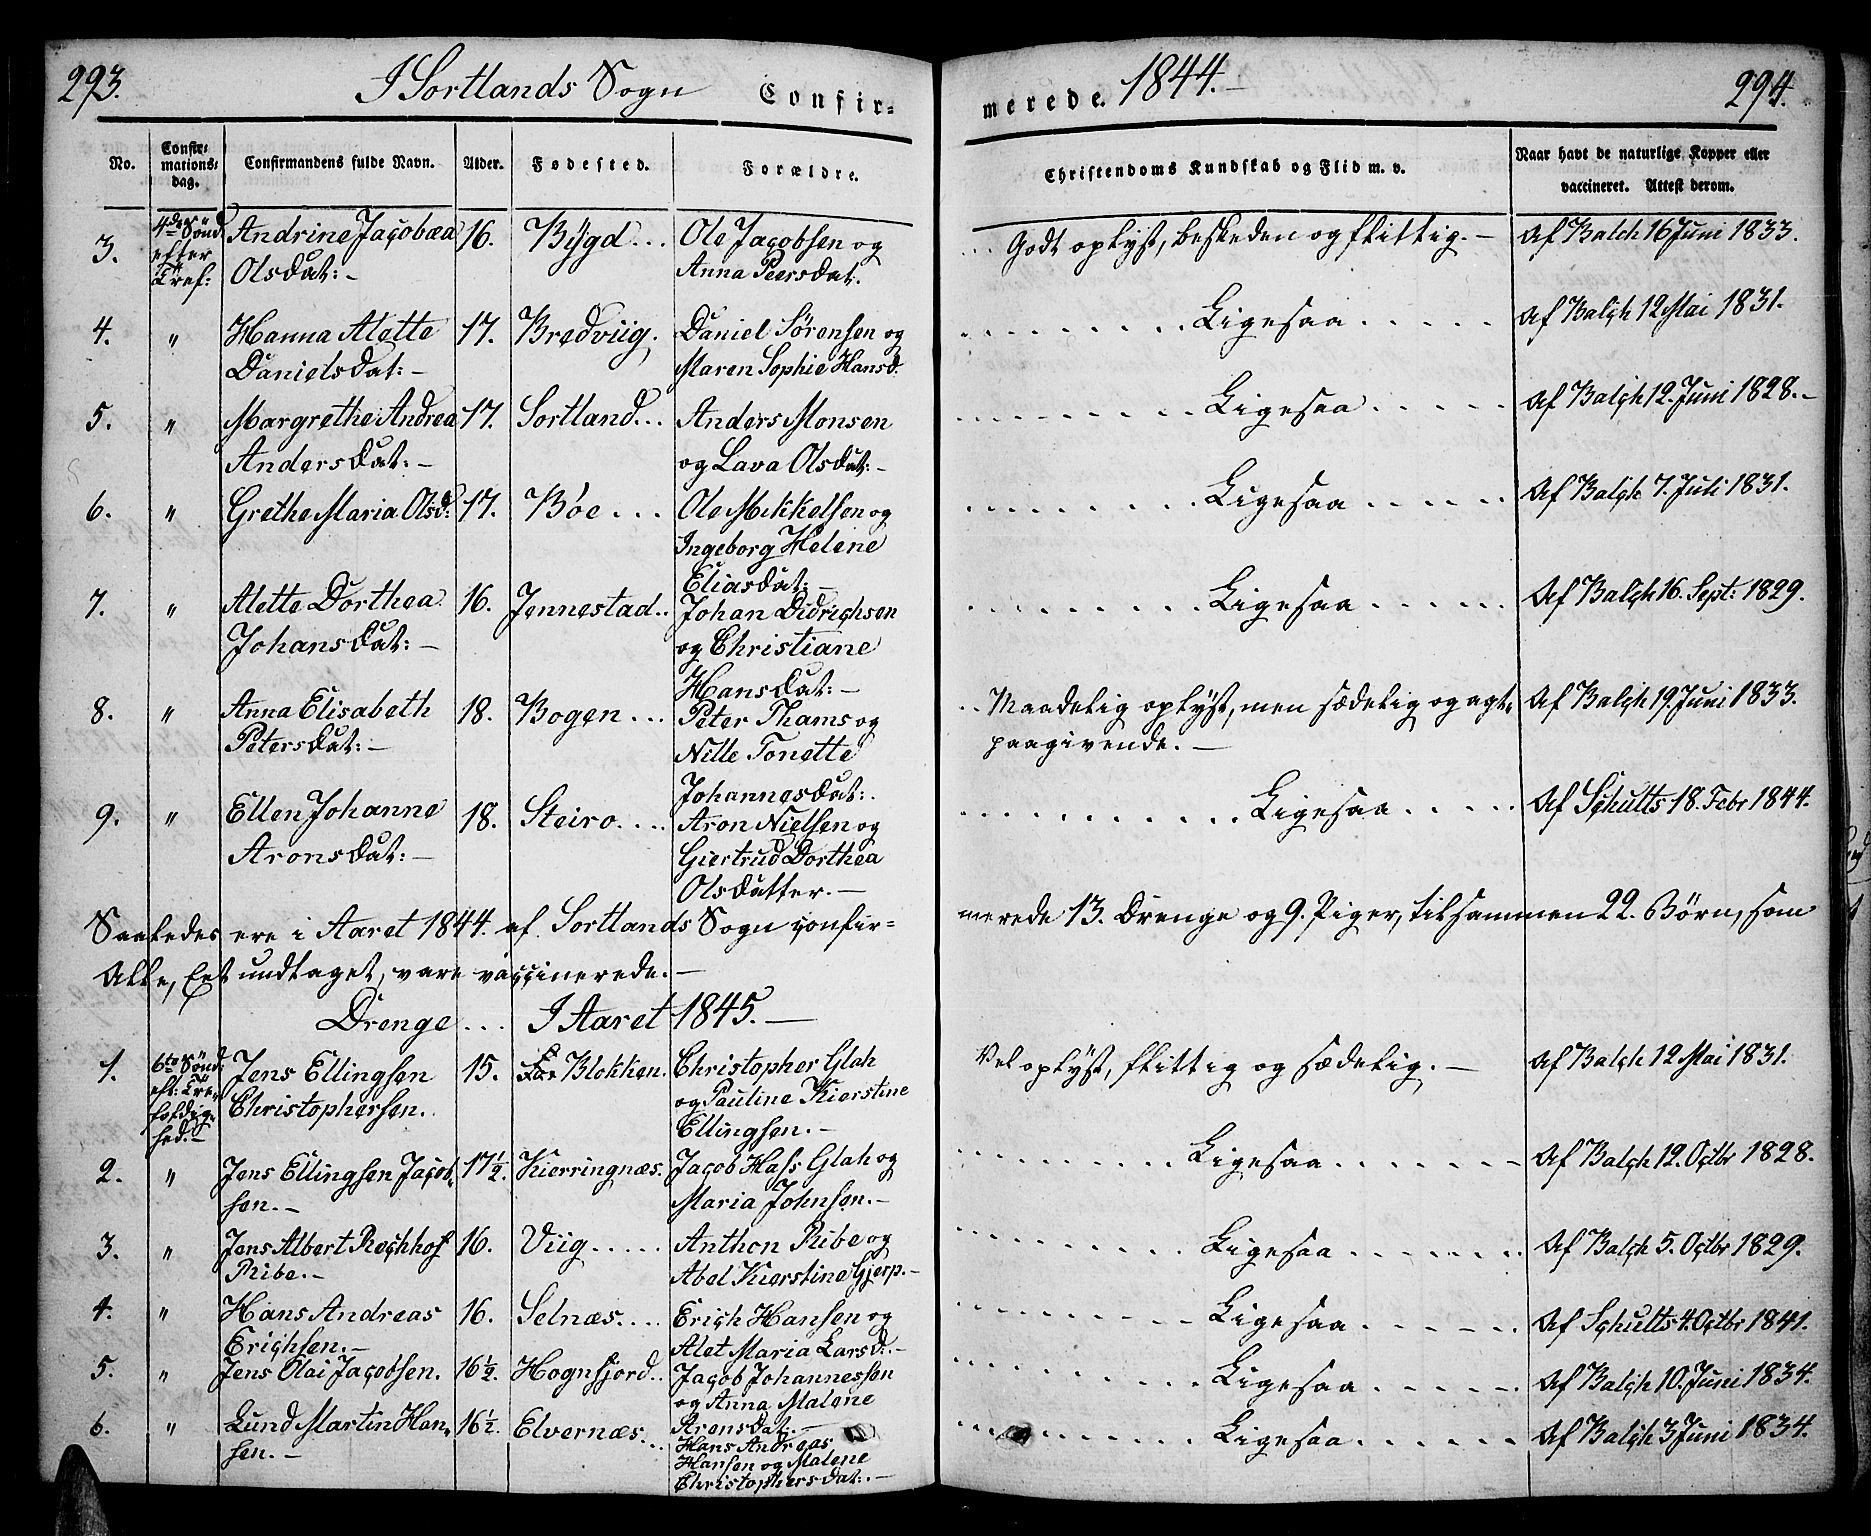 293.
I Sortlands Sogn
Confir-
merede. 1844.-
294.
No.
Confir-
mations-
dag.
Confirmandens fulde Navn.
Alder.
Fødested.
Forældre.
Christendoms Kundskab og Flid m. v.
Naar havt de naturlige Kopper eller
vaccineret. Attest derom.
3. 4de Sønd: Andrine Jacobæa 16. Bygd... Ole Jacobsen og ... Godt oplyst, beskeden og flittig.- Af Balch 16 Juni 1833.
efter Olsdat:- Anna Peersdat.
Tref:
4. " Hanna Alette 17. Bredviig. Daniel Sørensen og Ligesaa Af Balch 12 Mai 1831.
Danielsdat:- Maren Sophie Hansd.
5. " Margrethe Andrea 17. Sortland... Anders Monsen Ligesaa Af Balch 12. Juni 1828.-
Andersdat:- og Lava Olsdat:-
6. " Grethe Maria Olsd: 17. Bøe... Ole Mikkelsen og Ligesaa Af Balch 7. Juli 1831.
Ingeborg Helene
Eliasdat:-
7. " Alette Dorthea 16. Jennestad.. Johan Didrichsen Ligesaa Af Balch 16. Sept: 1829.
Johansdat:- og Christiane
Hansdat:-
8. " Anna Elisabeth 18. Bogen... Peter Thams og .. Maadelig oplyst, men sædelig og agt- Af Balch 19. Juni 1833.
Petersdat:- Nille Tonette paagivende.-
Johannesdat:.
9. " Ellen Johanne 18. Steiro.... Aron Nielsen og Ligesaa Af Schults 18. Febr 1844.
Aronsdat:- Giertrud Dorthea
Olsdatter.-
Saaledes ere i Aaret 1844. af Sortlands Sogn confir= merede 13. Drenge og 9. Piger, tilsammen 22. Børn, som
Alle, Eet undtaget, vare vaccinerede.-
Drenge... I Aaret 1845.-
1. 6te Sønd: Jens Ellingsen 15. Blokken. Christopher Glah Vel oplyst, flittig og sædelig.- Af Balch 12 Mai 1831.
eft: Tre- Christophersen. og Pauline Kierstine
foldig- Ellingsen.-
hed.-
2. " Jens Ellingsen Jacob- 17½ Kierringnæs. Jacob Hass Glah og Ligesaa Af Balch 12. Octbr 1828.
sen.- Maria Johnsen.-
3. " Jens Albert Rechhof 16. Viig..... Anthon Ribe og Ligesaa Af Balch 5. Octbr 1829.
Ribe.- Abel Kierstine Gjerp.-
4. " Hans Andreas 16. Selnæs.... Erich Hansen og Ligesaa Af Schults 4. Octbr 1841.
Erichsen.- Alet Maria Larsd:-
5. " Jens Olai Jacobsen. 16½. Hognfjord.. Jacob Johannessen Ligesaa Af Balch 10. Juni 1834.
og Anna Malene
Aronsdat:-
6. " Lund Martin Han- 16½. Elvernæs... Hans Andreas Ligesaa Af Balch 3 Juni 1834.
sen.- Hansen og Malene
Christophersdat:-